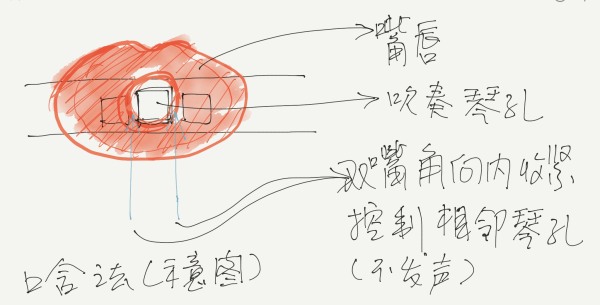 嘴唇
吹奏琴孔
双嘴角向内收紧
控制相邻琴孔
(不发声)
口含法(示意图)